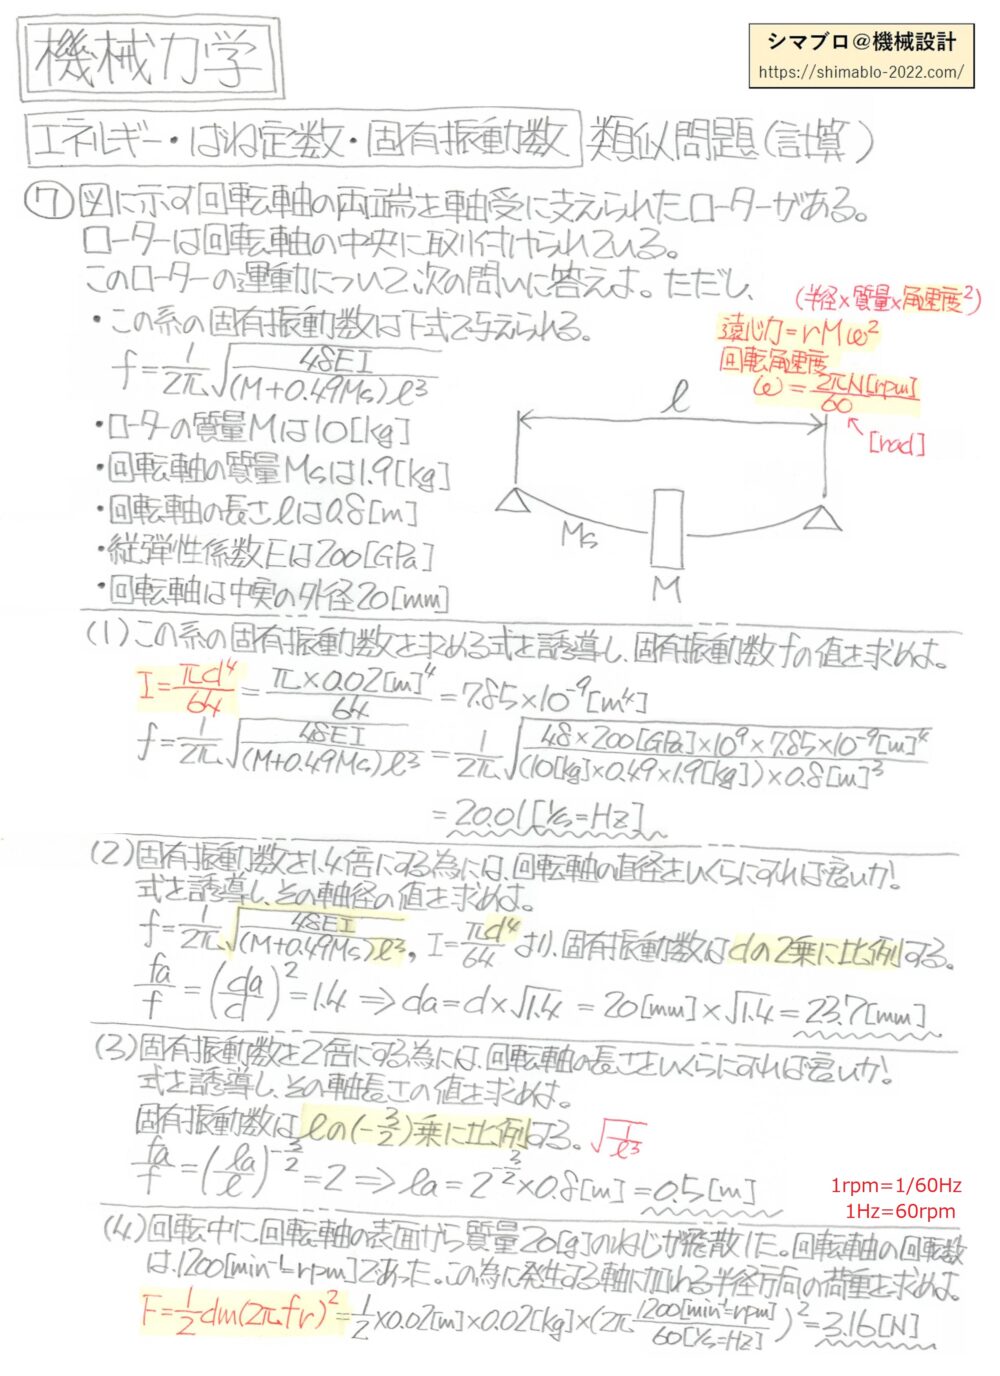 機械力学
シマブロ@機械設計
https://shimablo-2022.com/
エネルギー・ばね定数・固有振動数 類似問題(計算)
⑦図に示す回転軸の両端を軸受に支えられたローターがある。
ローターは回転軸の中央に取り付けられている。
このローターの運動について次の問いに答えよ。ただし、
・この系の固有振動数は下式で与えられる。
f=1/2π √(48EI/(M+0.49Ms)ℓ³)
(半径×質量×角速度²)
遠心力=rMω²
回転角速度
ω=2πN[rpm]/60
[rad]
・ローターの質量Mは10[kg]
・回転軸の質量Msは1.9[kg]
・回転軸の長さℓは0.8[m]
・縦弾性係数Eは200[GPa]
・回転軸は中実の外径20[mm]
ℓ
Ms
M
(1)この系の固有振動数を求める式を誘導し、固有振動数fの値を求めよ。
I=πd⁴/64=π×0.02[m]⁴/64=7.85×10⁻⁹[m⁴]
f=1/2π √(48EI/(M+0.49Ms)ℓ³)=1/2π √(48×200[GPa]×10⁹×7.85×10⁻⁹[m]⁴/(10[kg]×0.49×1.9[kg])×0.8[m]³)
=20.01[1/s=Hz]
(2)固有振動数を1.4倍にする為には、回転軸の直径をいくらにすれば良いか!
式を誘導し、その軸径の値を求めよ。
f=1/2π √(48EI/(M+0.49Ms)ℓ³), I=πd⁴/64 より、固有振動数はdの2乗に比例する。
fa/f=(da/d)²=1.4⇒da=d×√1.4=20[mm]×√1.4=23.7[mm]
(3)固有振動数を2倍にする為には、回転軸の長さをいくらにすれば良いか!
式を誘導し、その軸長さの値を求めよ。
固有振動数はℓの(-3/2)乗に比例する。 √(1/ℓ³)
fa/f=(ℓa/ℓ)^(-3/2)=2⇒ℓa=2^(-3/2)×0.8[m]=0.5[m]
1rpm=1/60Hz
1Hz=60rpm
(4)回転中に回転軸の表面から質量20[g]のねじが飛散した。回転軸の回転数
は、1200[min⁻¹=rpm]であった。この為に発生する軸に加わる半径方向の荷重を求めよ。
F=1/2dm(2πfr)²=1/2×0.02[m]×0.02[kg]×(2π 1200[min⁻¹=rpm]/60[1/s=Hz])²=3.16[N]